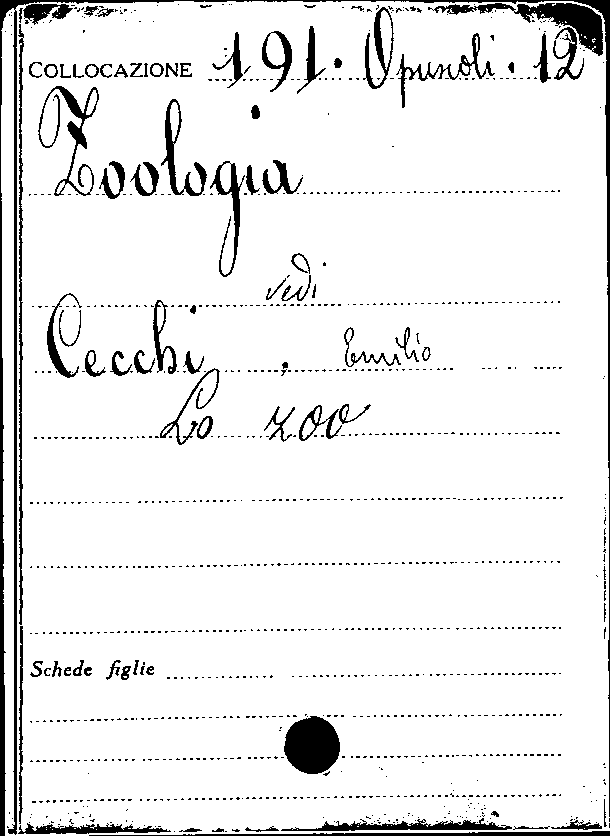 COLLOCAZIONE 191. Opuscoli. 12
Zoologia
vedi
Cecchi, Emilio
Lo zoo
Schede figlie